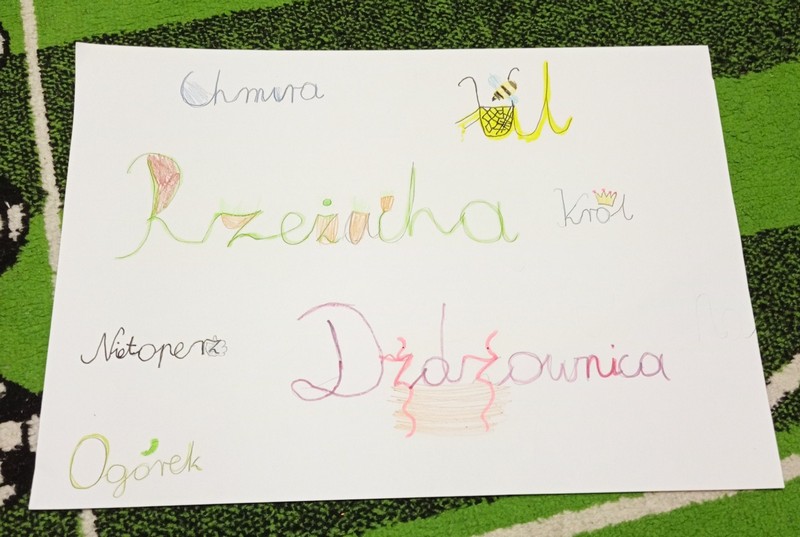 Chmura
Ul
Rzeżucha
Król
Nietoperz
Dżdżownica
Ogórek